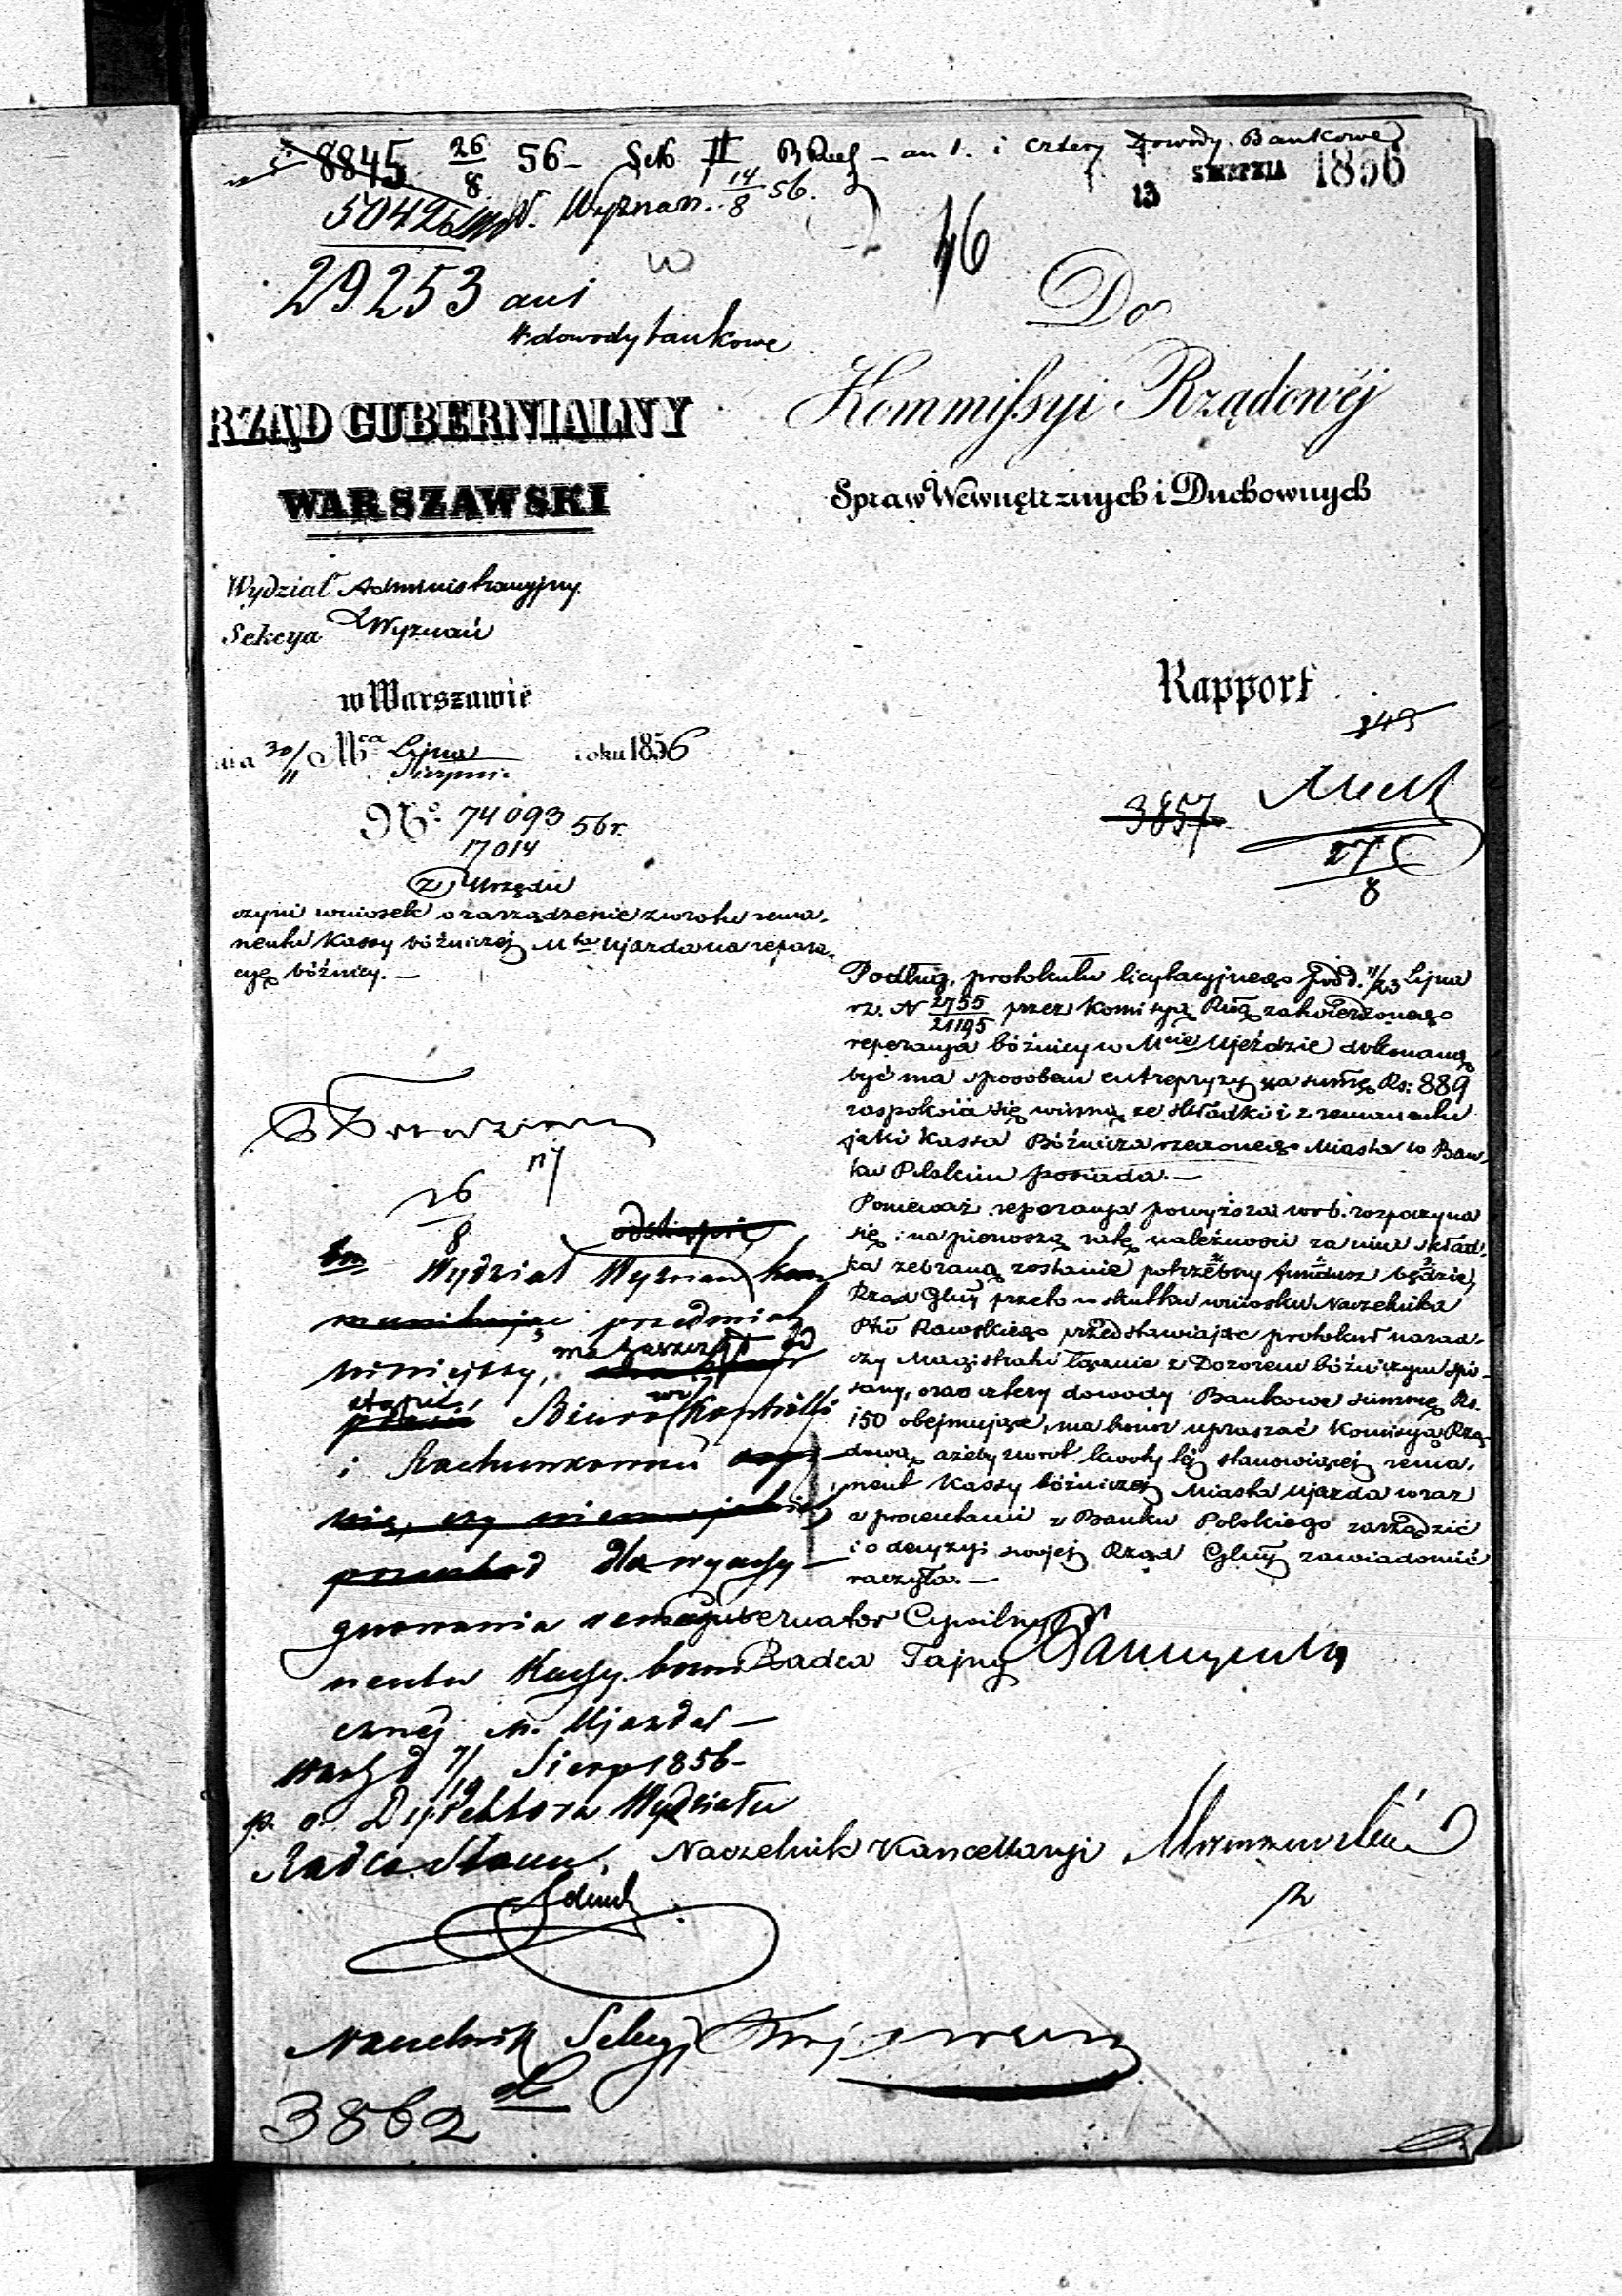 8845 26/8 56 – Sek II – an 1. i cztery Dowody Bankowe
13 SIERPNIA 1856
5042 Wyznań. 14/8 56.
46
29253 an 1
4 dowody bankowe
Do
Kommissyi Rządowéj
Spraw Wewnętrznych i Duchownych
RZĄD GUBERNIALNY
WARSZAWSKI
Wydział Administracyjny
Sekcya Wyznań
w Warszawie
30/11 Mca Lipca/Sierpnia roku 1856
No. 74093/17014 56 r.
Z Urzędu
czyni wniosek o zarządzenie zwrotu rema-
nentu Kassy bóżniczej Mta Ujazda na repara-
cyę bóżnicy. —
Rapport
149
3857
27/8
Podług protokułu licytacyjnego pod d. 11/23 Lipca
rz. N 2755/21195 przez Komisyą Rwą zatwierdzonego
reperacya bóżnicy w Mcie Ujeździe dokonaną
być ma sposobem entrepryzy za summę Rs: 889
zaspokoić się winną ze składki i z remanentu
jaki Kassa Bóźnicza rzeczonego Miasta w Ban-
ku Polskim posiada. —
Ponieważ reperacya powyższa w r. b. rozpoczyna
się i na pierwszą ratę należności zanim skład-
ka zebraną zostanie potrzebny fundusz będzie,
Rząd Glny przeto w skutku wniosku Naczelnika
Ptu Rawskiego przedstawiając protokuł narad-
czy Magistratu łącznie z Dozorem bóżniczym spi-
sany, oraz cztery dowody Bankowe summę Rs.
150 obejmujące, ma honor upraszać Komisyą Rzą-
dową ażeby zwrot kwoty tej stanowiącej rema-
nent Kassy bóżniczej Miasta Ujazda wraz
z procentami z Banku Polskiego zarządzić
i o decyzyi swojej Rząd Glny zawiadomić
raczyła. —
Gubernator Cywilny
Radca Tajny
Naczelnik Kancellaryi
26/8
odstąpić
Wydział Wyznań kom
munikując przedmiot
niniejszy, ma zaszczyt od
stąpić Biurowi Kontrolli
i Rachunkowości
nie, czy niema jakiej
przeszkod dla wyassy-
gnowania rema
nentu Kassy bożni
cznéj m. Ujazda —
Warsz d 7/19 Sierp 1856 –
p. o. Dyrektora Wydziału
Radca Stanu,
Naczelnik Sekcyi
3862